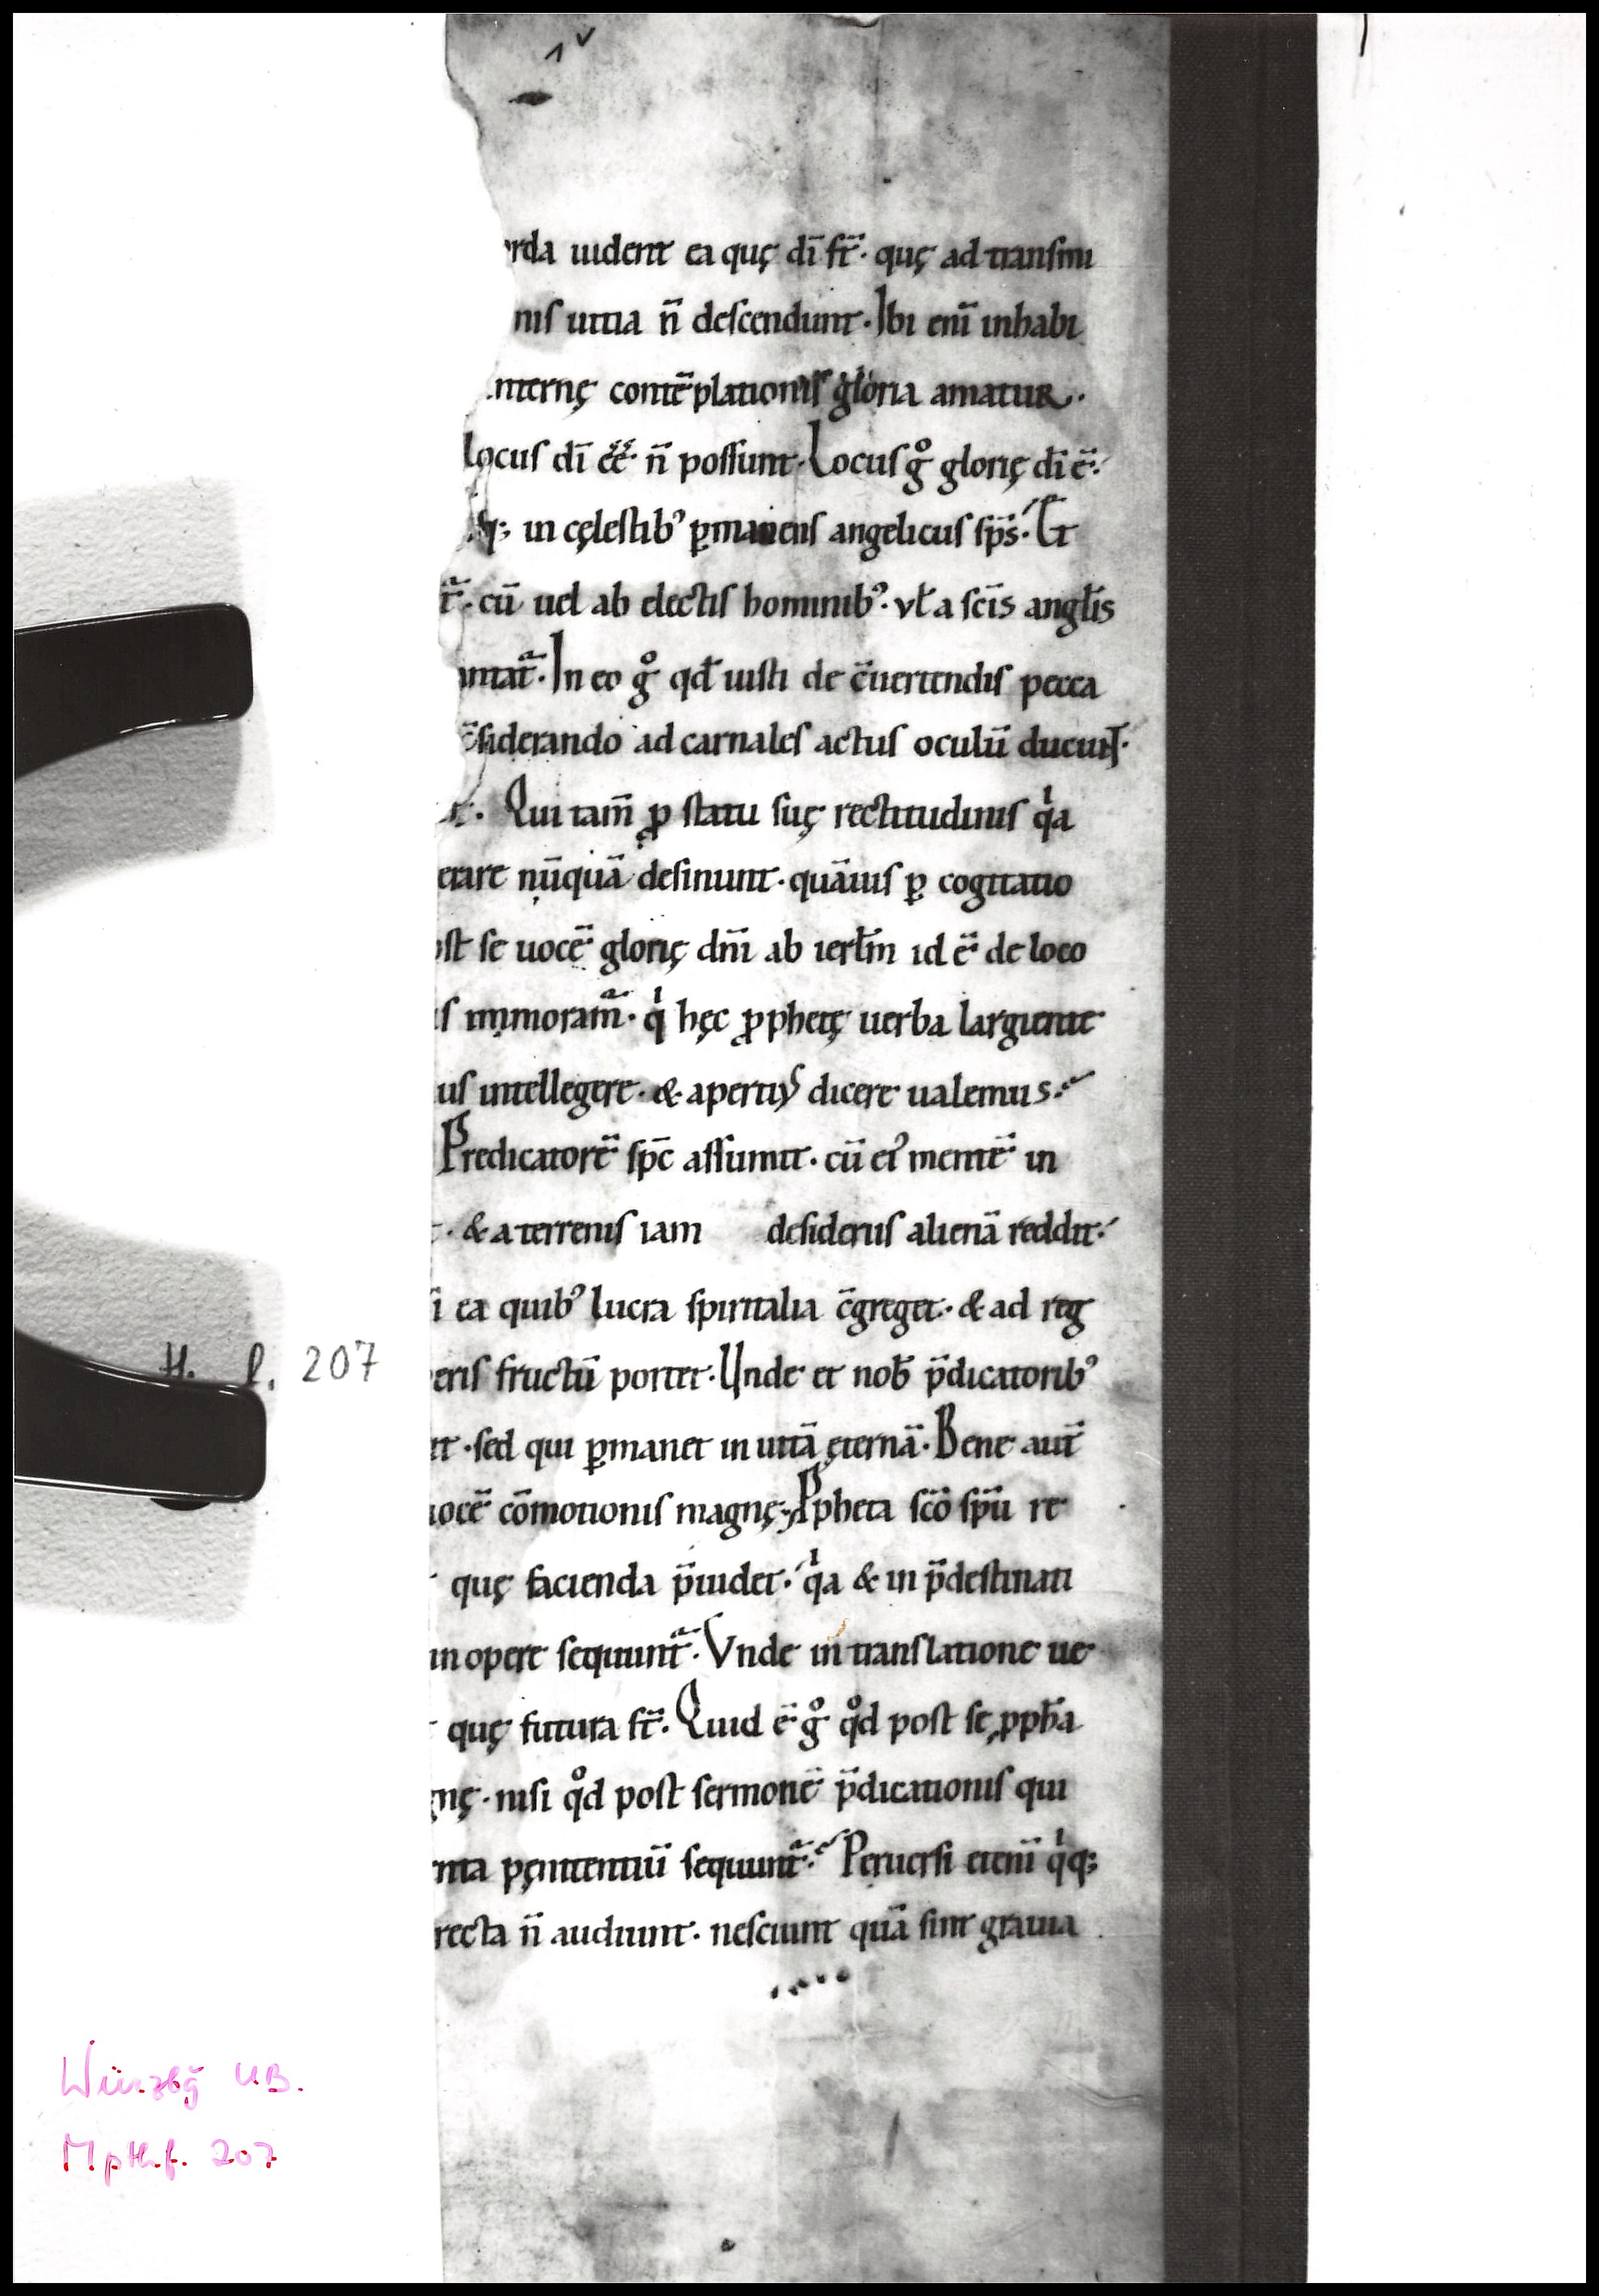 1v
rda uident ea quę dī st̄· quę ad transitu
nis uitia n̄ descendunt· Ibi enī inhabi
nternę contēplationis gloria amatur·
Locus dī eē· n̄ possunt· Locus gͦ glorię dī ē·
q; in cęlestib᾽ ꝑmanens angelicus sp̄s· Et
t᷑· cū uel ab electis hominib᾽· vł a sc̄is angłis
intat᷑· In eo gͦ qd̄ iusti de c̄uertendis pecca
c̄siderando ad carnales actus oculū ducunt·
t· Qui tam̄ ꝓ statu suę rectitudinis qͥa
erare nūquā desinunt· quāuis ꝑ cogitatio
ost se uocē glorię dn̄i ab ierłm id ē de loco
is inmoram᷑· qͥ hęc ꝓphetę uerba largiente
us intellegere· & apertius dicere ualemus·
Predicatorē sp̄c assumit· cū ei᾽ mentē in
· & a terrenis iam desideriis alienā reddit·
i ea quib᾽ lucra spiritalia c̄greget· & ad reg
eris fructū portet· Unde et nob̄ p̄dicatorib᾽
it· sed qui ꝑmanet in uitā ęternā· Bene aut̄
uocē cōmotionis magnę· Ꝓpheta sc̄o sp̄u re
quę facienda p̄uidet· qͥa & in p̄destinati
in opere sequunt᷑· Vnde in translatione ue
quę futura st̄· Quid ē gͦ qͦd post se ꝓph̄a
gnę· nisi qͦd post sermonē p̄dicationis qui
nta pęnitentiū sequunt᷑· Peruersi etenī qͥq;
recta n̄ audiunt· nesciunt quā sint grauia
207
Würzbg UB.
M p th. f. 207